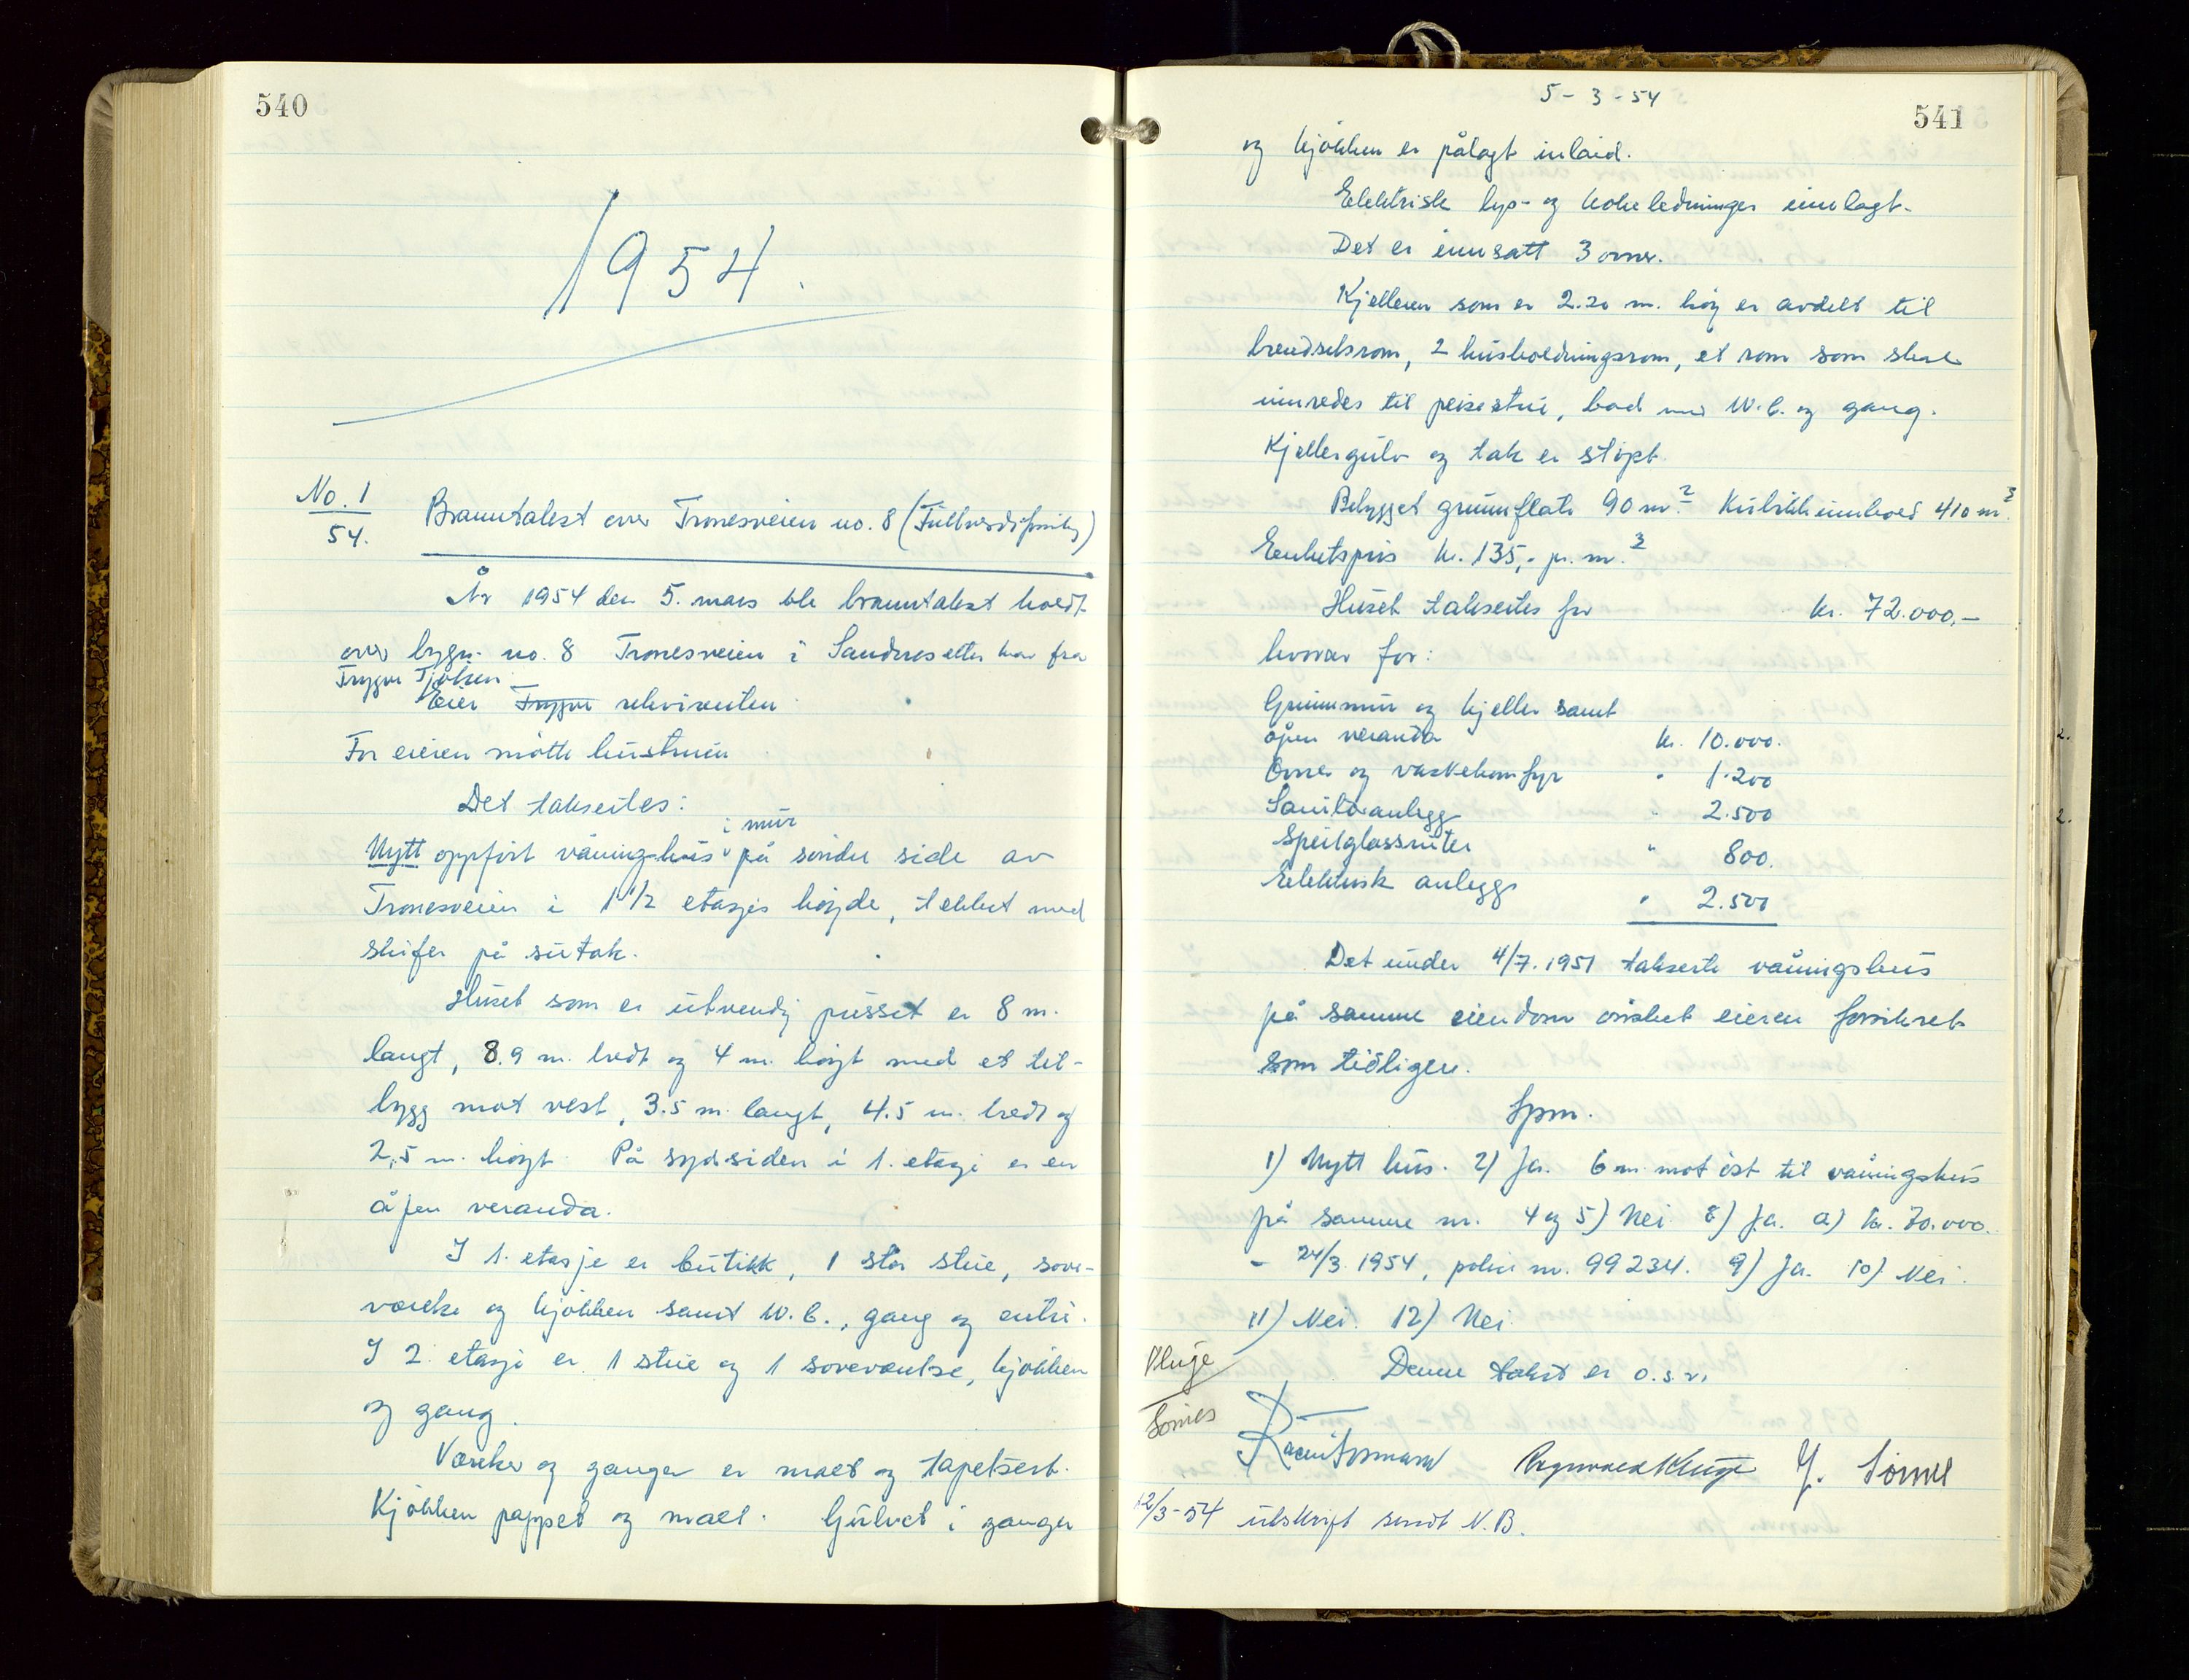 540
1954.
No. 1
54.
Branntakst over Tronesveien no. 8 (Fullverdiforsikring)
År 1954 den 5. mars ble branntakst holdt
over bygn. no. 8 Tronesveien i Sandnes etter krav fra
Trygve Tjølsen.
Eier Trygve rekvirenten
For eieren møtte hustruen
Det takseres:
i mur
Nytt oppført våningshus på søndre side av
Tronesveien i 1 1/2 etasjes høyde, tekket med
skifer på sutak.
Huset som er utvendig pusset er 8 m.
langt, 8.9 m. bredt og 4 m. høyt med et til-
bygg mot vest, 3.5 m. langt, 4.5 m. bredt og
2,5 m. høyt. På sydsiden i 1. etasje er en
åpen veranda.
I 1. etasje er butikk, 1 stor stue, sove-
værelse og kjøkken samt W.C., gang og entré.
I 2. etasje er 1 stue og 1 soveværelse, kjøkken
og gang.
Værelser og ganger er malt og tapetsert.
Kjøkken pappet og malt. Gulvet i ganger
5-3-54
541
og kjøkken er pålagt inlaid.
Elektrisk lys- og kokeledninger innlagt.
Det er innsatt 3 ovner.
Kjelleren som er 2.20 m. høy er avdelt til
brendselsrom, 2 husholdningsrom, et rom som skal
innredes til peisestue, bad med W.C. og gang.
Kjellergulv og tak er støpt.
Bebygget grunnflate 90 m.² Kubikkinnhold 410 m³.
Enhetspris kr. 135,- pr. m.³
Huset takseres for kr. 72.000,-
hvorav for:
Grunnmur og kjeller samt
åpen veranda kr. 10.000.
Ovner og vaskekomfyr " 1.200
Sanitæranlegg " 2.500
Speilglassruter " 800.
Elektrisk anlegg " 2.500
Det under 4/7.1951 takserte våningshus
på samme eiendom ønsket eieren forsikret
som tidligere.
Spm.
1) Nytt hus. 2) Ja. 6 m. mot øst til våningshus
på samme nr. 4 og 5) Nei 8) Ja. a) kr. 70.000.
- 24/3.1954, polise nr. 99234. 9) Ja. 10) Nei.
11) Nei. 12) Nei.
Denne takst er o.s.v.
Kluge
Sømes
Ragnvald Kluge J. Sømme
12/3-54 utskrift sendt N.B.